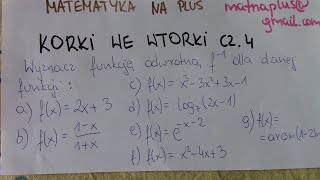 MATEMATYKA NA PLUS
matmaplus@
gmail.com
KORKI WE WTORKI CZ. 4
Wyznacz funkcję odwrotną f⁻¹ dla danej
funkcji:
a) f(x) = 2x + 3
b) f(x) = 1-x/1+x
c) f(x) = x³-3x²+3x-1
d) f(x) = log₇(2x-1)
e) f(x) = e^(-x-2)
f) f(x) = x²-4x+3
g) f(x) =